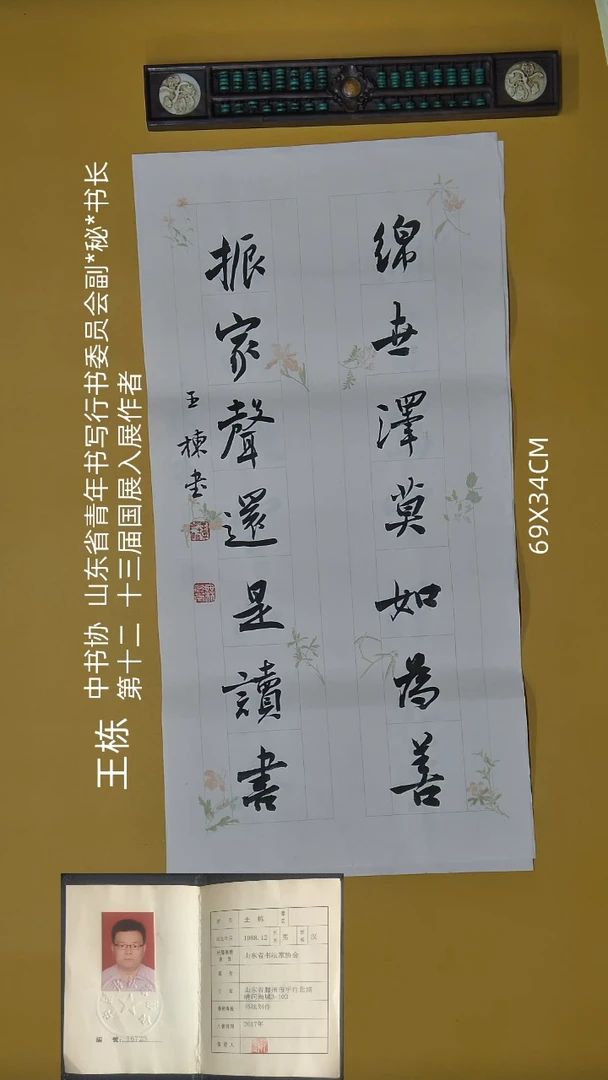 綿世澤莫如為善
振家聲還是讀書
王棟書
王栋
中书协 山东省青年书写行书委员会副*秘*书长
第十二 十三届国展入展作者
69X34CM
王栋
1988.12
汉
山东省书法家协会
2017年
编 号: 16725